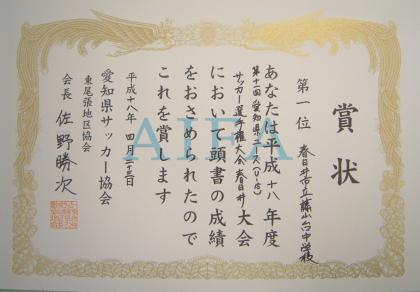 賞状
第一位 春日井市立藤山台中学校
あなたは平成十八年度
第十一回愛知県ユース(U-15)
サッカー選手権大会春日井大会
において頭書の成績
をおさめられたので
これを賞します
平成十八年 四月二十三日
愛知県サッカー協会
東尾張地区協会
会長 佐野勝次
AIFA